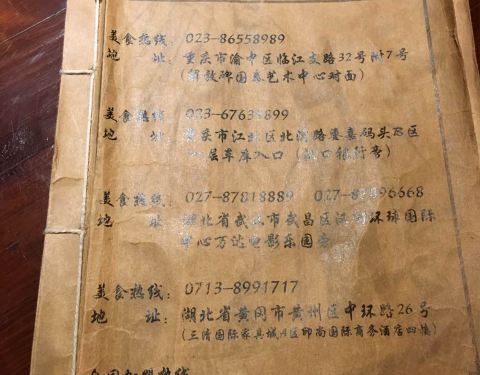 美食热线: 023-86558989
地 址: 重庆市渝中区临江支路32号附7号
(解放碑国泰艺术中心对面)
美食热线: 023-67638899
地 址 重庆市江北区北滨路 喜码头B区
层车库入口
美食热线: 027-87818889 027-8 96668
地 址 湖北省武汉市武昌区汉街环球国际
中心万达电影乐园旁
美食热线: 0713-8991717
地 址: 湖北省黄冈市黄州区中环路26号
(三清国际家具城A区即尚国际商务酒店四楼)
全国加盟热线